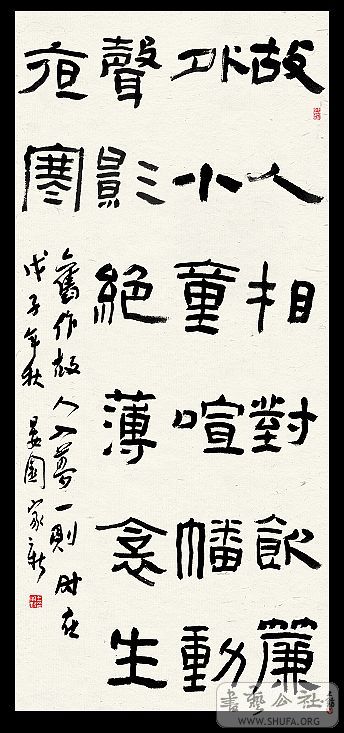 故人相對飲簾
外小童喧幡動
聲影絕薄衾生
夜寒
舊作故人入夢一則时在
戊子年秋晏園家新
書藝公社
WWW.SHUFA.ORG